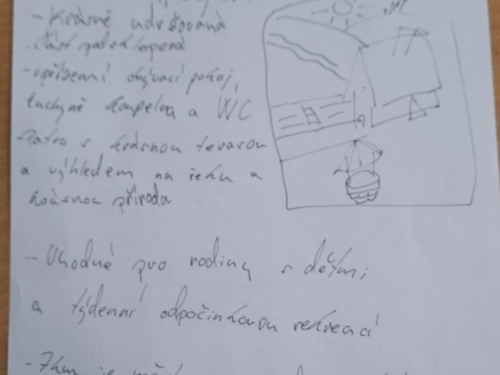 - Krásně udržovaná
část podsklepená
- v přízemí obývací pokoj,
kuchyně koupelna a WC
- Patro s krásnou terasou
a výhledem na řeku a
krásnou přírodu
- Vhodné pro rodiny s dětmi
a týdenní odpočinkovou rekreací
- 7km je